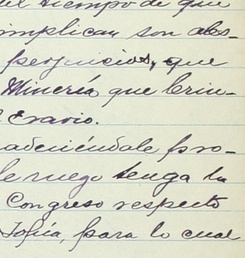 tiempo de que
implican son des-
perjuicios, que
Minería que brin-
Erario.
pro-
le ruego tenga la
Congreso respecto
para lo cual